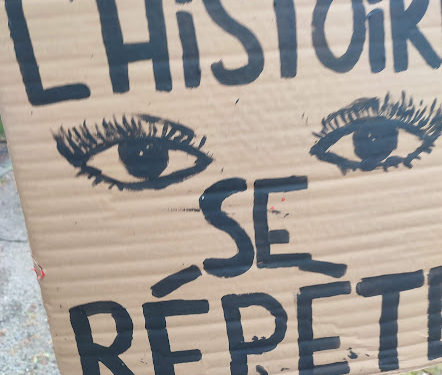 L'HISTOIR
SE
RÉPÈT